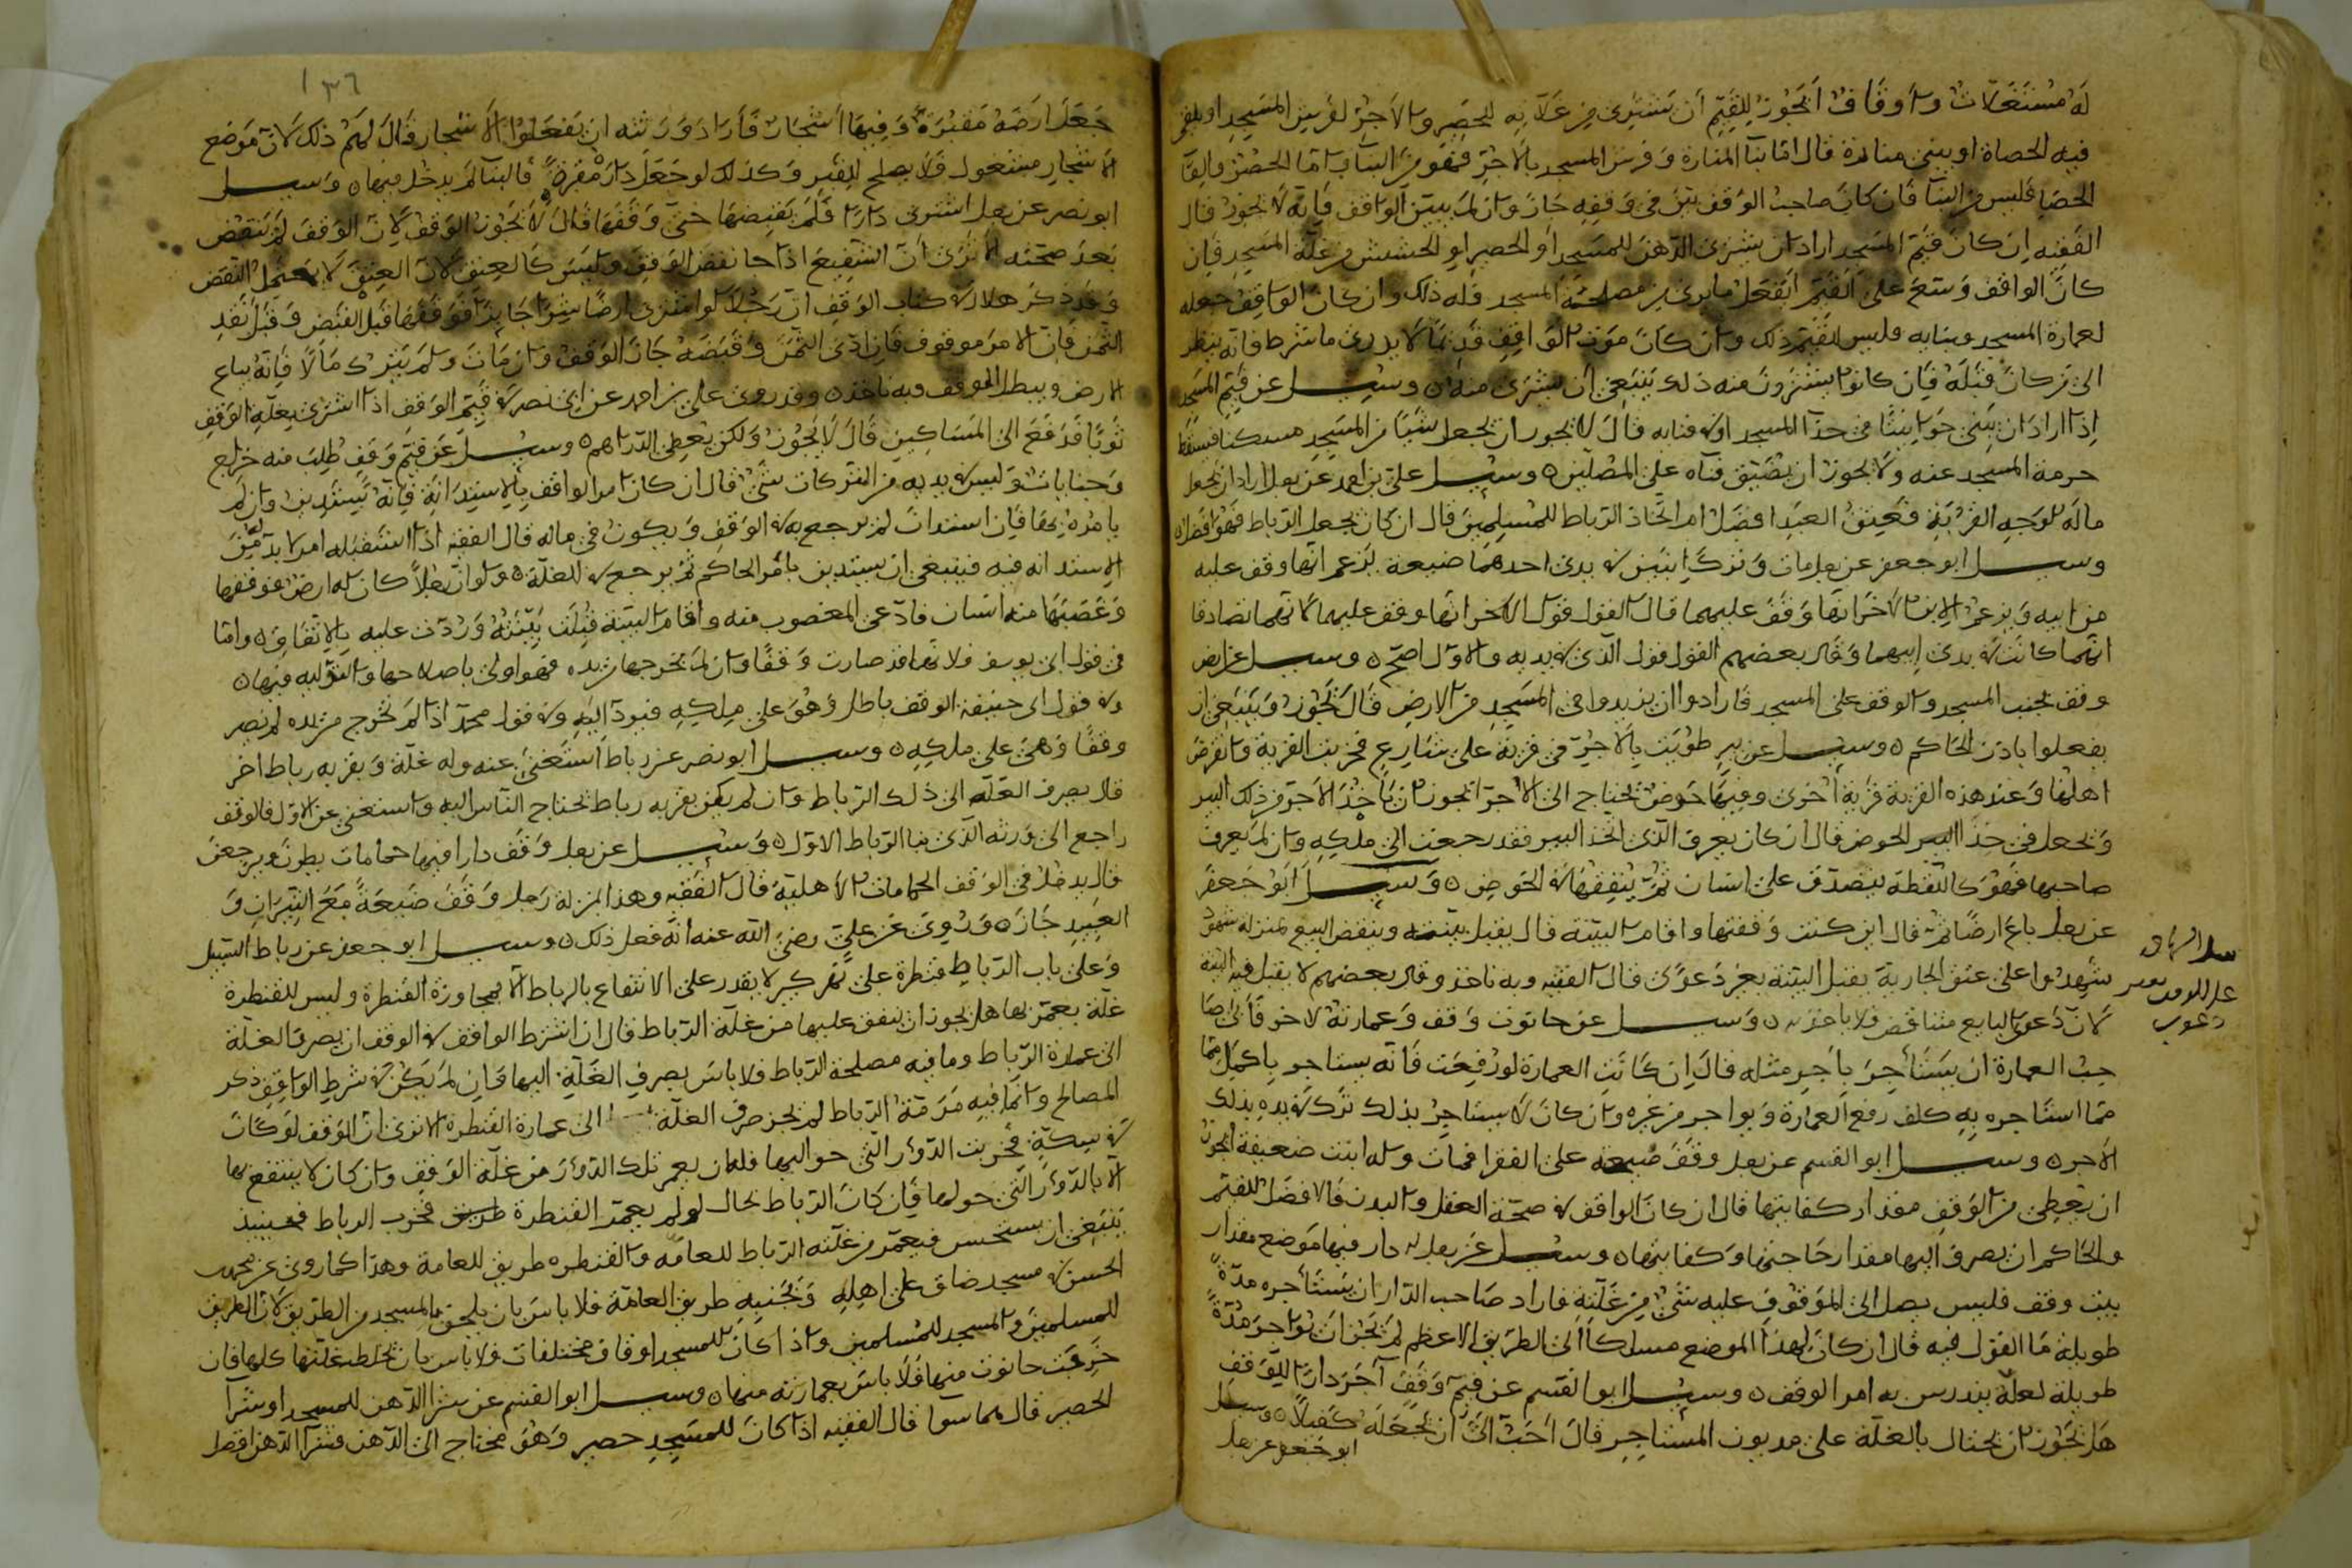 له مستغلات وأوقاف أيجوز للقيم أن يشترى من غلاته الحصير والآجر لفرش المسجد او يلقى
فيه الحصاة او يبنى منارة قال اما بنآ المنارة وفرش المسجد بالآجر فهو من البنآ واما الحصير والقآ
الحصا فليس من البنآ فان كان صاحب الوقف بين فى وقفه جاز وان لم يبين الواقف فانه لا يجوز قال
الفقيه ان كان قيم المسجد اراد ان يشترى الدهن للمسجد أو الحصير او الحشيش من غلة المسجد فان
كان الواقف وسع على القيم ايفعل ما يرى من مصلحة المسجد فله ذلك وان كان الواقف جعله
لعمارة المسجد وبنايه فليس للقيم ذلك وان كان موت الواقف قديما لا يدرى ما شرط فانه ينظر
الى من كان قبله فان كانوا يشترون منه ذلك ينبغى أن يشترى منه وسئل عن قيم المسجد
إذا اراد ان يبنى حوانيتا فى حد المسجد او فى فنايه قال لا يجوز ان يجعل شيئا من المسجد مسكنا فيسقط
حرمة المسجد عنه ولا يجوز ان يضيق فنآه على المصلين وسئل على بن احمد عن رجل اراد ان يجعل
ماله لوجه القربة فعتق العبد افضل ام اتخاذ الرباط للمسلمين قال ان كان يجعل الرباط فهو افضل
وسئل ابو جعفر عن رجل مات وترك ابنين فى يدى احدهما ضيعة يزعم انها وقف عليه
من ابيه ويزعم الابن الآخر انها وقف عليهما قال القول قول الآخر انها وقف عليهما لانهما تصادقا
انهما كانت فى يدى ابيهما وقال بعضهم القول قول الذى فى يديه والاول اصح وسئل عن ارض
وقف بجنب المسجد والوقف على المسجد فارادوا ان يزيدوا فى المسجد من الارض قال يجوز وينبغى ان
يفعلوا باذن الحاكم وسئل عن بير طويت بالآجر فى قرية على شارع فخربت القرية وانقرض
اهلها وعند هذه القرية قرية اخرى وفيها حوض يحتاج الى الآجر ايجوز ان ياخذ الآجر من ذلك البير
ويجعل فى هذا البير الحوض قال ان كان يعرف الذى اتخذ البير فقد رجعت الى ملكه وان لم يعرف
صاحبها فهو كاللقطة يتصدق على انسان ثم ينفقها فى الحوض وسئل ابو جعفر
عن رجل باع ارضا ثم قال انى كنت وقفتها واقام البينة قال يقبل بينته وينقض البيع بمنزلة شهود
شهدوا على عتق الجارية يقبل البينة بغير دعوى قال الفقيه وبه ناخذ وقال بعضهم لا يقبل فيه البينة
لان دعوى البايع متناقض فلا ياخذ به وسئل عن حانوت وقف وعمارته لآخر فأبى صا
حب العمارة ان يستأجر بأجر مثله قال ان كانت العمارة لو رفعت فانه يستاجر باكمل مما
مما استاجره به كلف رفع العمارة ويواجر من غيره وان كان لا يستاجر بذلك ترك فى يده بذلك
الاجر وسئل ابو القسم عن رجل وقف ضيعة على الفقرا فمات وله ابنت ضعيفة ايجوز
ان يعطى من الوقف مقدار كفايتها قال ان كان الواقف فى صحة العقل والبدن فالافضل للقيم
والحاكم ان يصرف اليها مقدار حاجتها وكفايتها وسئل عن رجل له دار فيها موضع مقدار
بيت وقف فليس يصل الى الموقوف عليه شئ من غلته فاراد صاحب الدار ان يستأجره مدة
طويلة ما القول فيه قال ان كان لهذا الموضع مسلكا الى الطريق الاعظم لم يجز ان يواجر مدة
طويلة لعله يندرس به امر الوقف وسئل ابو القسم عن قيم وقف آجر دارا للوقف
هل يجوز ان يحتال بالغلة على مديون المستاجر قال احب الى ان يجعله كفيلا وسئل
ابو جعفر عن رجل
١٣٦
جعل ارضه مقبرة وفيها اشجار فأراد ورثته ان يفعلوا الأشجار قال لهم ذلك لان موضع
الاشجار مشغول فلا يصلح للقبر وكذلك لو جعل داره مقبرة فالبنآ لم يدخل فيها وسئل
ابو نصر عن رجل اشترى دارا فلم يقبضها حتى وقفها قال لا يجوز الوقف لان الوقف لم ينقض
بعد صحته الا ترى أن الشفيع اذا جا نقض الوقف وليس كالعتق لان العتق لا يحتمل النقض
وقد ذكر هلال فى كتاب الوقف ان رجلا لو اشترى ارضا شرا جايزا فوقفها قبل القبض وقبل نقد
الثمن فان الامر موقوف فان ادى الثمن وقبضه جاز الوقف وان مات ولم يترك مالا فانه يباع
الارض ويبطل الوقف وبه ناخذ وقد روى على بن احمد عن ابى نصر فى قيم الوقف اذا اشترى بغلة الوقف
ثوبا فدفع الى المساكين قال لا يجوز ولكن يعطى الدراهم وسئل عن قيم وقف طلب منه خراج
وجنايات وليس فى يديه من الغركات شئ قال ان كان امر الواقف بالاستدانة فانه يستدين وان لم
يامره بها فان استدان لم يرجع به فى الوقف ويكون فى ماله قال الفقيه اذا استقبله امر لا بد من
الاستدانه فيه فينبغى ان يستدين بأمر الحاكم ثم يرجع فى الغلة ولو ان رجلا كان له ارض فوقفها
وغصبها منه انسان فادعى المغصوب منه واقام البينة قبلت بينته وردت عليه بالاتفاق واما
فى قول ابى يوسف فلانها قد صارت وقفا وان لم يخرجها من يده فهو اولى باصلاحها والتولية فيها
وفى قول ابى حنيفة الوقف باطل وهو على ملكه فيرد اليه وفى قول محمد اذا لم تخرج من يده لم يصر
وقفا وهى على ملكه وسئل ابو نصر عن رباط استغنى عنه وله غلة وبقربه رباط اخر
قال يصرف الغلة الى ذلك الرباط وان لم يكن بقربه رباط يحتاج الناس اليه واستغنى عن الاول فالوقف
راجع الى ورثة الذى بنا الرباط الاول وسئل عن رجل وقف دارا فيها حمامات يطرن ويرجعن
قال يدخل فى الوقف الحمامات الأهلية قال الفقيه وهذا بمنزلة رجل وقف ضيعة مع الثيران و
العبيد جاز وروى عن على رضى الله عنه انه فعل ذلك وسئل ابو جعفر عن رباط السبيل
وعلى باب الرباط قنطرة على نهر كبير لا يقدر على الانتفاع بالرباط الا بمجاوزة القنطرة وليس للقنطرة
غلة يعمر بها هل يجوز ان ينفق عليها من غلة الرباط قال ان اشترط الواقف فى الوقف ان يصرف الغلة
الى عمارة الرباط وما فيه مصلحة الرباط فلا باس بصرف الغلة اليها فان لم يكن فى شرط الواقف ذكر
المصالح وانما فيه مرمة الرباط لم يجز صرف الغلة الى عمارة القنطرة الا ترى ان الوقف لو كان
فى سكة فخربت الدور التى حواليها فله ان يعمر تلك الدور من غلة الوقف وان كان لا ينتفع بها
الا بالدور التى حولها فان كان الرباط بحال لو لم يعمر القنطرة فخرب الرباط فحينئذ
ينبغى ان يستحسن فيعمر من غلته الرباط للعامة والقنطره طريق للعامة وهذا كما روى عن محمد بن
الحسن فى مسجد ضاق على اهله وبجنبه طريق العامة فلا باس بان يلحق بالمسجد من الطريق لان الطريق
للمسلمين والمسجد للمسلمين واذا كان للمسجد اوقاف مختلفات فلا باس بان يخلط غلتها كلها فان
خربت حانوت منها فلا باس بعمارته منها وسئل ابو القسم عن شرا الدهن للمسجد او شرآ
الحصير قال هما سوا قال الفقيه اذا كان للمسجد حصير وهو محتاج الى الدهن فشرآ الدهن افضل